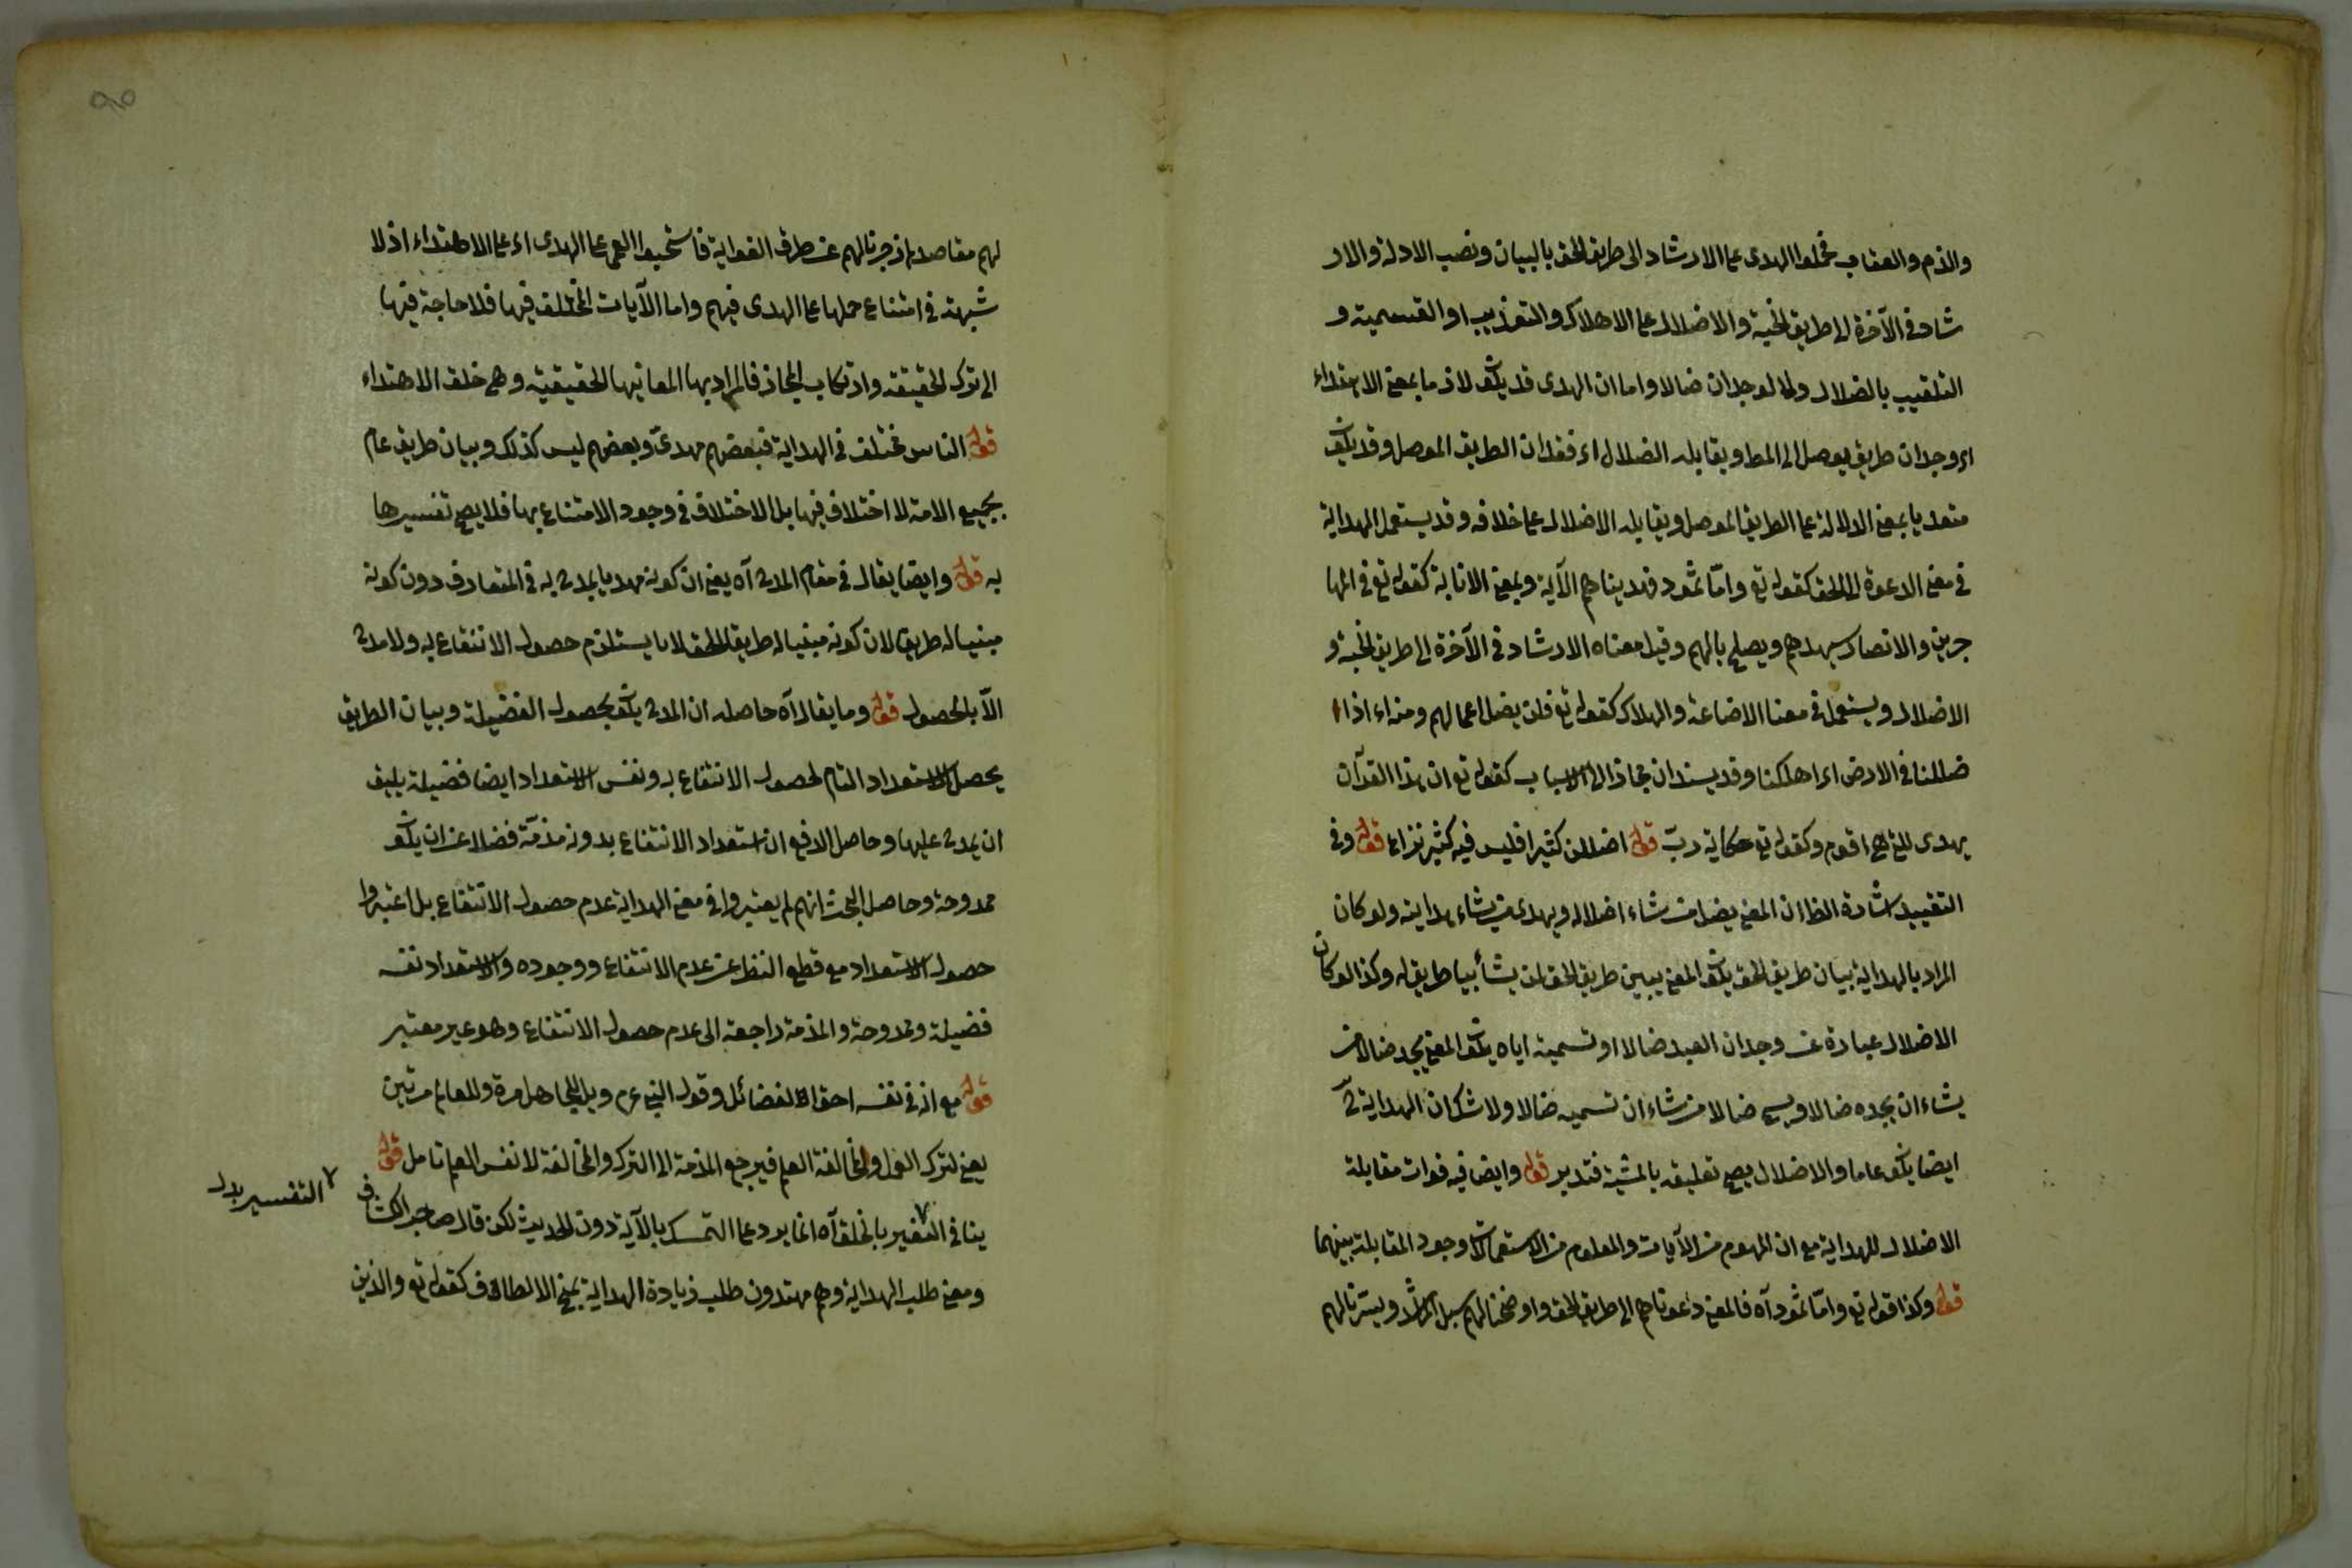 والذم والعقاب فحملوا الهدى على الارشاد الى طريق الحق بالبيان ونصب الادلة والار
شاد فى الآخرة الى طريق الجنة والاضلال على الاهلاك والتعذيب او التسمية و
التلقيب بالضلال ولما لوجدان ضالا واما ان الهدى قد يكون لازما بمعنى الاهتداء
اى وجدان طريق يوصل الى المط ويقابله الضلال اى فقدان الطريق الموصل وقد يكون
متعديا بمعنى الدلالة على الطريق الموصل ويقابله الاضلال على خلافه وقد يستعمل الهداية
فى معنى الدعوة الى الحق كقوله تع وامّا ثمود فهديناهم الآية وبمعنى الاثابة كقوله تع فى المها
جرين والانصار سيهديهم ويصلح بالهم وقيل معناه الارشاد فى الآخرة الى طريق الجنة و
الاضلال ويستعمل فى معنا الاضاعة والهلاك كقوله تع فلن يضل اعمالهم ومنه اءاذا
ضللنا فى الارض اى اهلكنا وقد يسندان مجازا الى الاسباب كقوله تع ان هذا القرآن
يهدى للتى هى اقوم وكقوله تع حكاية ربّ قوله اضللن كثيرا فليس فيه كثير نزاع قوله وفى
التقييد اشارة الظ ان المعنى يضل من شاء اضلاله ويهدى من يشاء هدايته ولو كان
المراد بالهداية بيان طريق الحق يكون المعنى يبين طريق الحق لمن يشأ بيا طريق له وكذا لو كان
الاضلال عبارة عن وجدان العبد ضالا او تسميته اياه يكون المعنى يجد ضالا من
يشاء ان يجده ضالا ويسمى ضالا من شاء ان تسميه ضالا ولا شك ان الهداية ح
ايضا يكون عاما والاضلال يصح تعليقه بالمشية فتدبر قوله وايضا فيه فوات مقابلة
الاضلال للهداية مع ان المفهوم من الآيات والمعلوم من الاستعمالات وجود المقابلة بينهما
قوله وكذا قوله تع وامّا ثمود آه فالمعنى دعوناهم الى طريق الحق واوضحنا لهم سبل الرشد ويسّرنا لهم
لهم مقاصدهم زجرنا لهم عن طرق الغواية فاستحبوا العمى على الهدى اى على الاهتداء اذ لا
شبهة فى امتناع حملها على الهدى فيهم واما الآيات المختلف فيها فلا حاجة فيها
الى ترك الحقيقة وارتكاب المجاز فالمراد بها المعانيها الحقيقية وهى خلق الاهتداء
قوله الناس مختلف فى الهداية فبعضهم مهدىّ وبعضهم ليس كذلك وبيان طريق عام
بجميع الامة لا اختلاف فيها بل الاختلاف فى وجود الامتناع بها فلا يصح تفسيرها
به قوله وايضا يقال فى مقام المدح آه يعنى ان كونه مهديا يمدح به فى المتعارف دون كونه
مبنيا له طريق لان كونه مبنيا له طريق الحق لا يستلزم حصول الانتفاع به ولا مدح
الّا بالحصول قوله وما يقال آه حاصله ان المدح يكون بحصول الفضيلة وبيان الطريق
يحصل الاستعداد التام لحصول الانتفاع به ونفس الاستعداد ايضا فضيلة يليق
ان يمدح عليها وحاصل الدفع ان استعداد الانتفاع بدونه مذمّة فضلا عن ان يكون
ممدوحة وحاصل البحث انهم لم يعتبروا فى معنى الهداية عدم حصول الانتفاع بل اعتبروا
حصول الاستعداد مع قطع النظر عن عدم الانتفاع ووجوده والاستعداد نفسه
فضيلة وممدوحة والمذمة راجعة الى عدم حصول الانتفاع وهو غير معتبر
قوله مع انه فى نفسه احق الفضائل وقول النبى عم ويل للجاهل مرة وللعالم مرتين
يعنى لترك العمل والمخالفة العلم فيرجع المذمة الى الترك والمخالفة لا نفس العلم تامل قوله
ينافى التفسير بالخلق آه انما يرد على التمسك بالآية دون الحديث لكن قال صاحب الكشاف
التفسير بدل
ومعنى طلب الهداية وهم مهتدون طلب زيادة الهداية بمنح الالطاف كقوله تع والذين